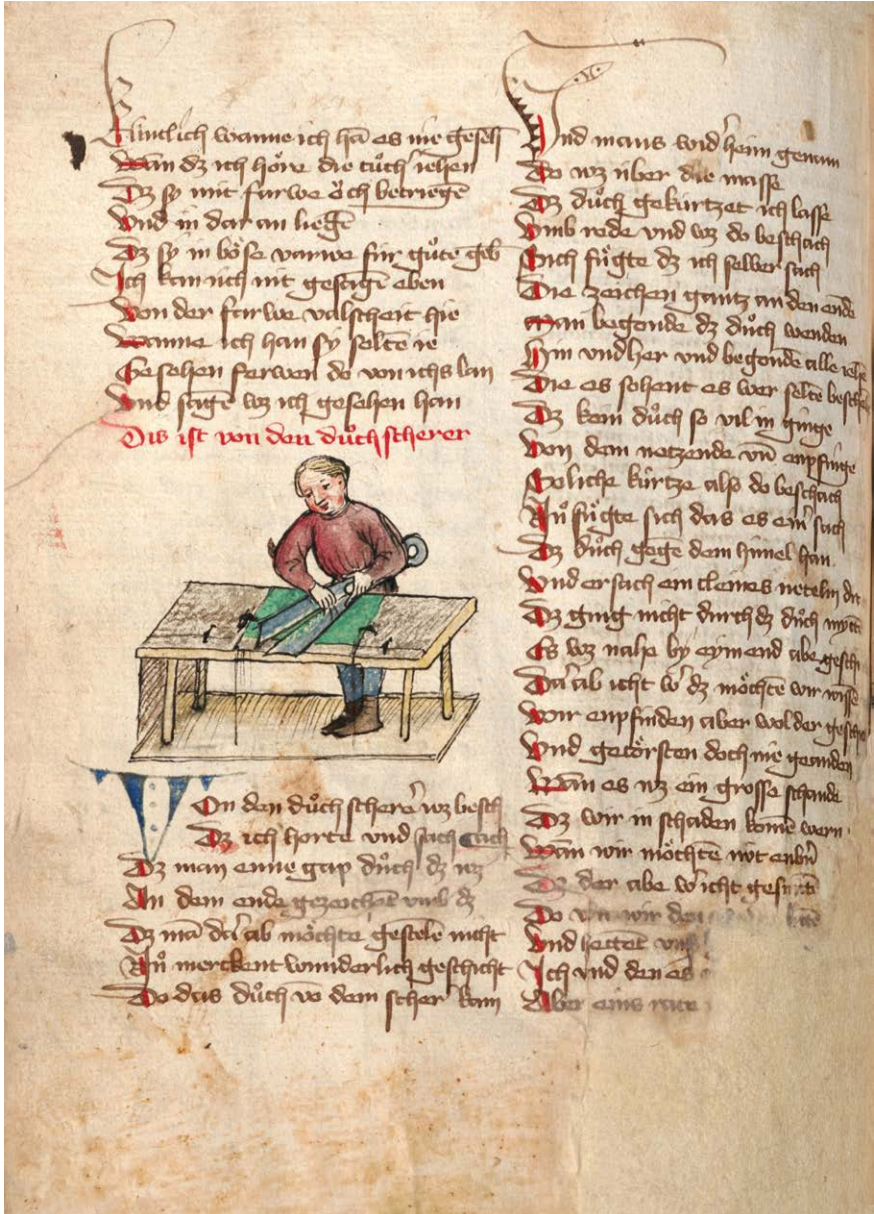 Kuntlich wanne ich hā es nie geseh
Wan dz ich höre die tůch iehen
Dz sy mit farwe öch betriegē
Vnd in dar an liegē
Dz sy in böse varwe für gůte geb
Ich kan uch nit gesagē eben
Von der farwe valscheit hie
Wanne ich han sy seltē ie
Gesehen ferwen do von ichs lan
Vnd sagē wz ich gesehen han
Dis ist von den důch scherer
On den důch scherē wz besch
Dz ich horte vnd sach
Dz man eime gap důch dz wz
An dem ende gezeichēt vmb dz
Dz mā dar ab möchte gestelē nicht
Nů merckent wunderlich geschicht
Do das důch vō dem scher kam
Vnd mans wid heim genam
Do wz über die masse
Dz důch gekürtzet ich lasse
Vmb rede vnd wz do beschach
Mich fůgte dz ich selber sach
Die zeichen gantz an den ende
Man begonde dz důch wenden
Hin vnd her vnd begondē alle iehē
Die es sohent es wer seltē
Dz kein důch so vil in ginge
Von dem netzende vn̄ enpfinge
Soliche kürtze also do beschach
Nů fůgte sich das es ein sach
Dz důch gege dem himel han
Vnd er sach ein cleines netelin
Dz ging nicht durch dz důch
Es wz nahe by eymend abe
Dar ab icht w dz möchtē wir
Wir enpfinden aber wol der
Vnd getörsten doch nie geanden
Wan es wz ein grosse schande
Dz wir in schaden komē wern
Wan wir möchtē nit enbern
Dz der abe w icht
Do wir den
Vnd hettēt
Ich vnd den es
Aber eins